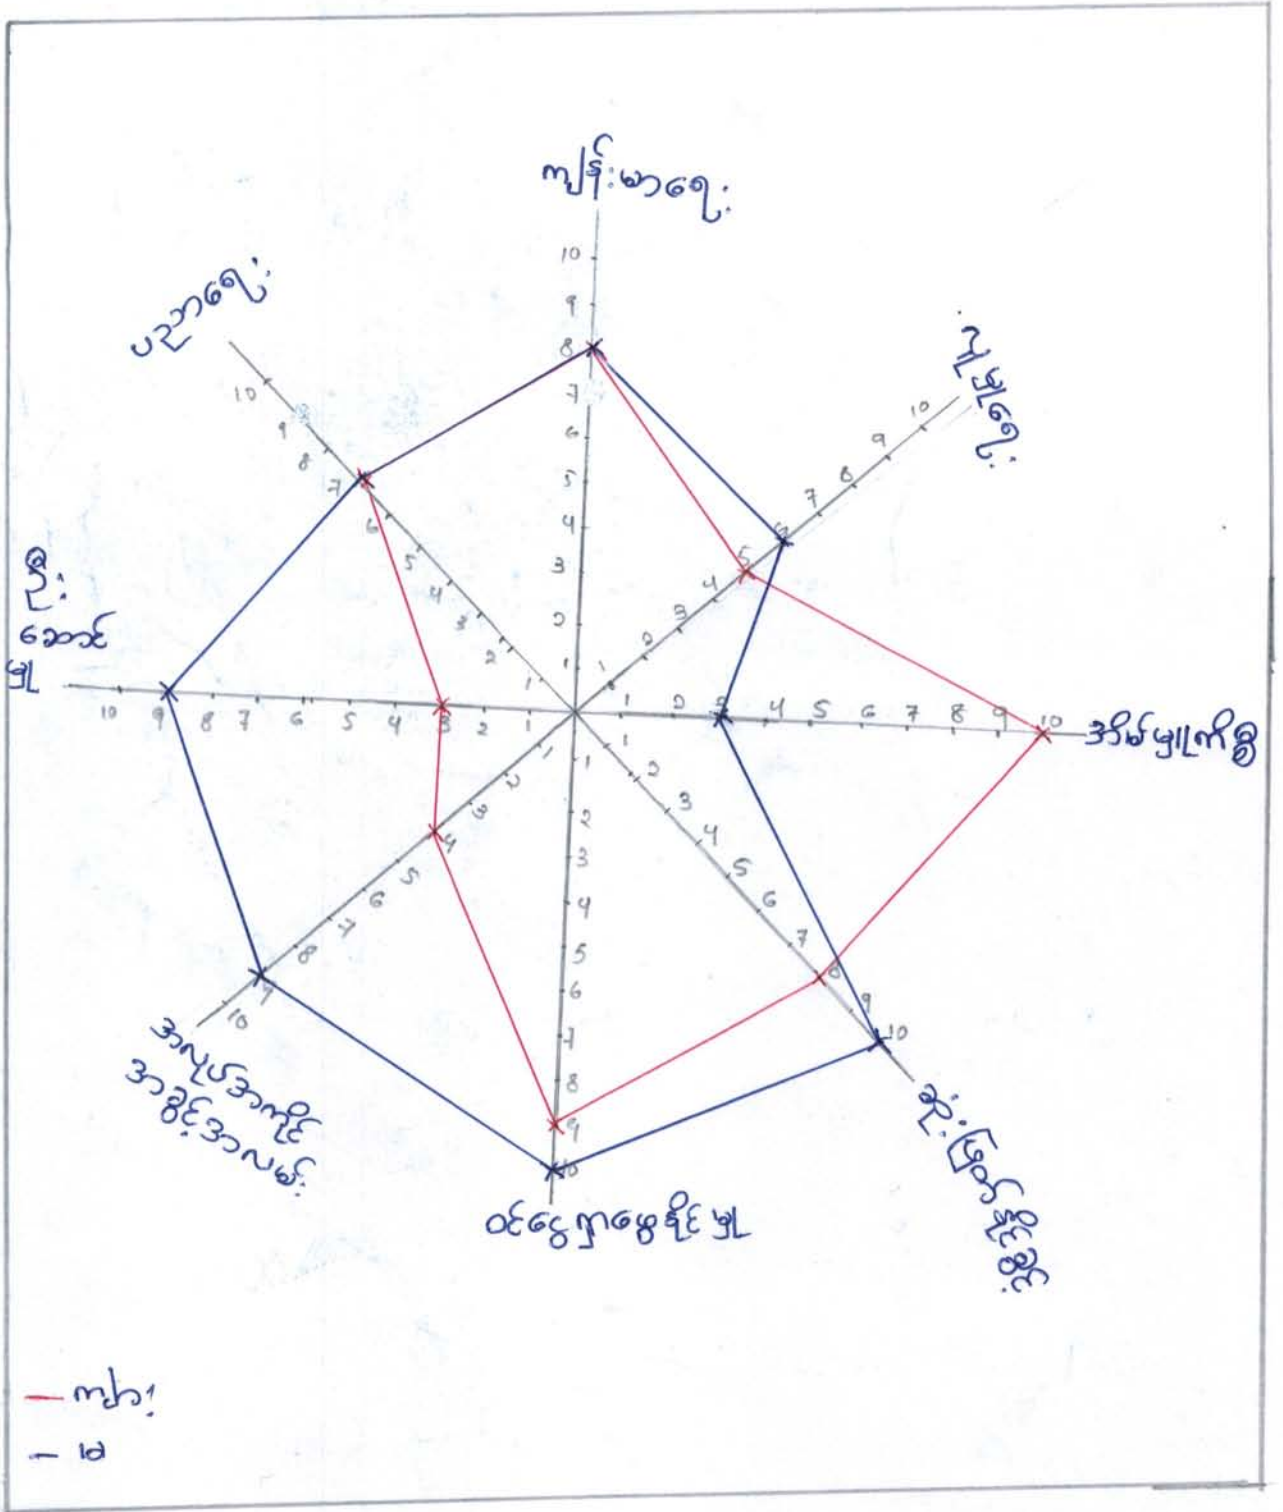 ကျန်းမာရေး
10
9
8
7
6
5
4
3
2
1
လူမှုရေး
10
9
8
7
6
5
4
3
2
1
အိမ်မှုကိစ္စ
1 2 3 4 5 6 7 8 9 10
ဆုံးဖြတ်နိုင်ခွင့်
1
2
3
4
5
6
7
8
9
10
ဝင်ငွေရှာဖွေနိုင်မှု
1
2
3
4
5
6
7
8
9
10
အလုပ်အကိုင်
အခွင့်အလမ်း
1
2
3
4
5
6
7
8
9
10
ဦး
ဆောင်
မှု
10 9 8 7 6 5 4 3 2
ပညာရေး
10
9
8
7
6
5
4
3
2
1
ကျား
မ